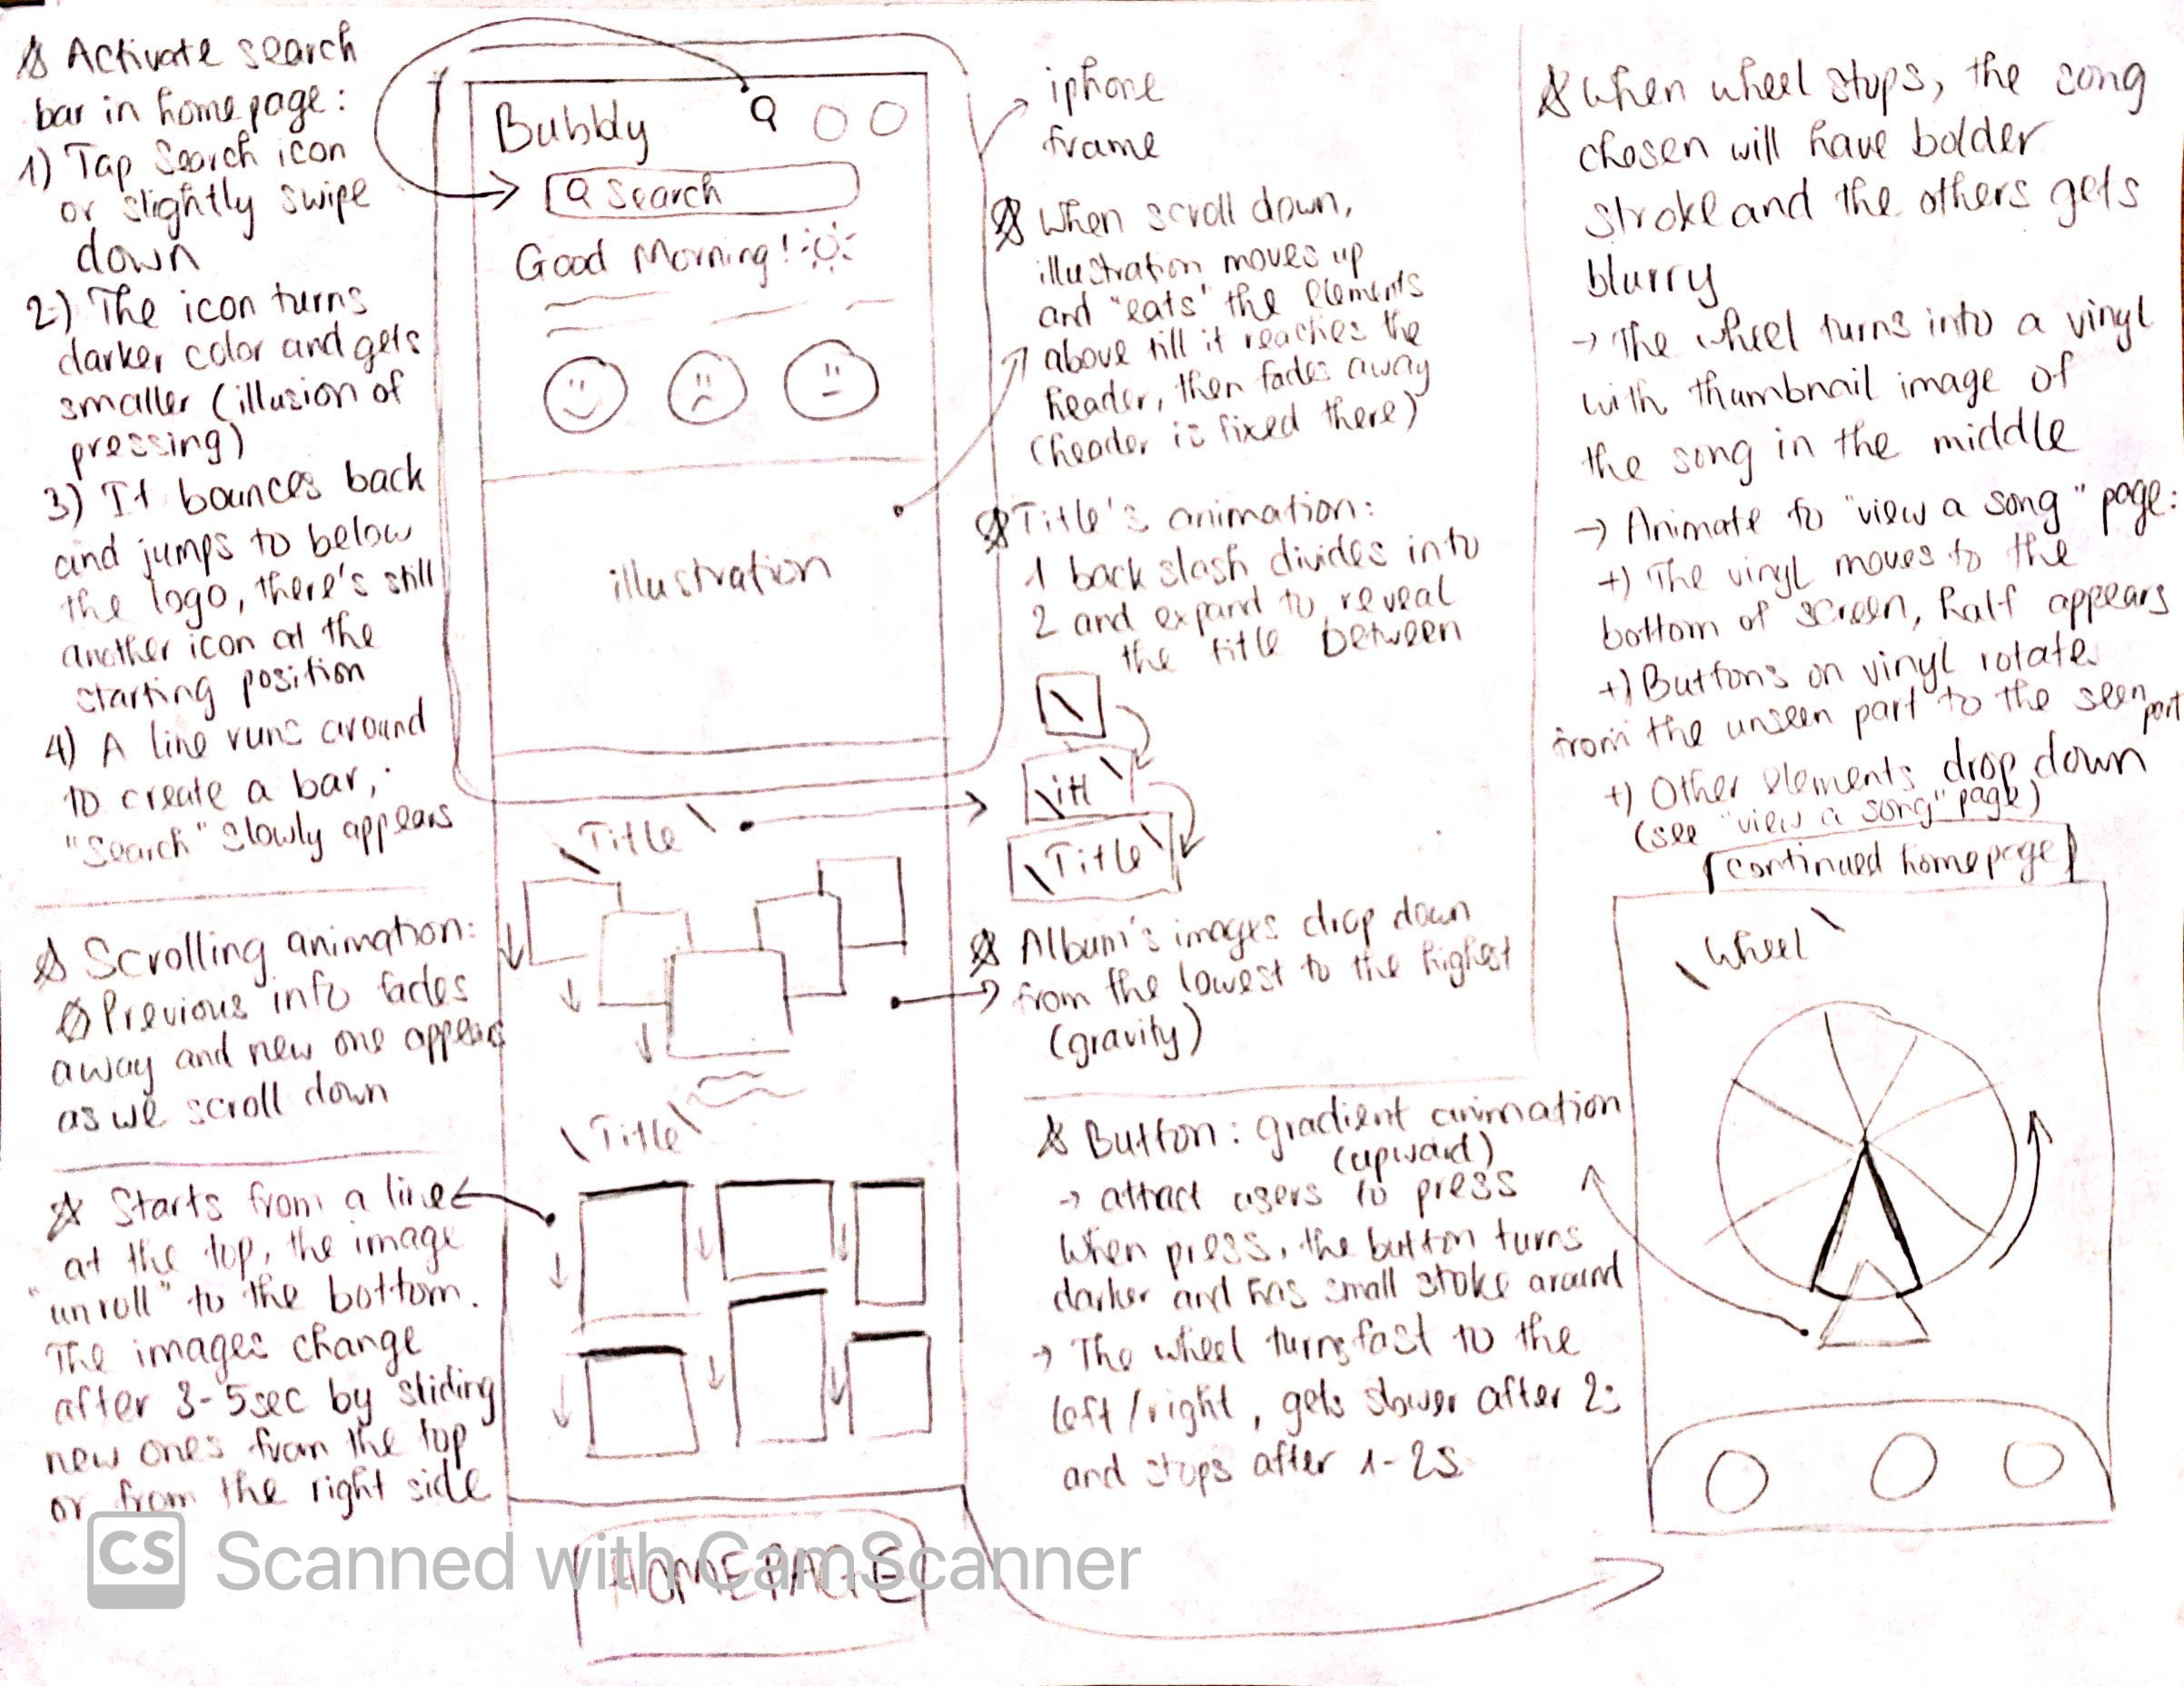 Activate search
bar in homepage:
1) Tap Search icon
or slightly swipe
down
2) The icon turns
darker color and gets
smaller (illusion of
pressing)
3) It bounces back
and jumps to below
the logo, there's still
another icon at the
starting position
4) A line runs around
to create a bar,
"Search" slowly appears
Scrolling animation:
Previous info fades
away and new one appears
as we scroll down
Starts from a line
at the top, the image
"unroll" to the bottom.
The images change
after 3-5sec by sliding
new ones from the top
or from the right side
Bubbly
Search
Good Morning!
illustration
\Title\
\Title\
HOMEPAGE
iphone
frame
When scroll down,
illustration moves up
and "eats" the elements
above till it reaches the
header, then fades away
(header is fixed there)
Title's animation:
1 back slash divides into
2 and expand to reveal
the title between
\
\itl\
\Title\
Album's images drop down
from the lowest to the highest
(gravity)
Button: gradient animation
(upward)
→ attract users to press
When press, the button turns
darker and has small stoke around
→ The wheel turns fast to the
left/right, gets slower after 2s
and stops after 1-2s
When wheel stops, the song
chosen will have bolder
stroke and the others gets
blurry
→ The wheel turns into a vinyl
with thumbnail image of
the song in the middle
→ Animate to "view a song" page:
+) The vinyl moves to the
bottom of screen, half appears
+) Buttons on vinyl rotate
from the unseen part to the seen part
+) Other elements drop down
(see "view a song" page)
continued homepage
\Wheel\
CS Scanned with CamScanner